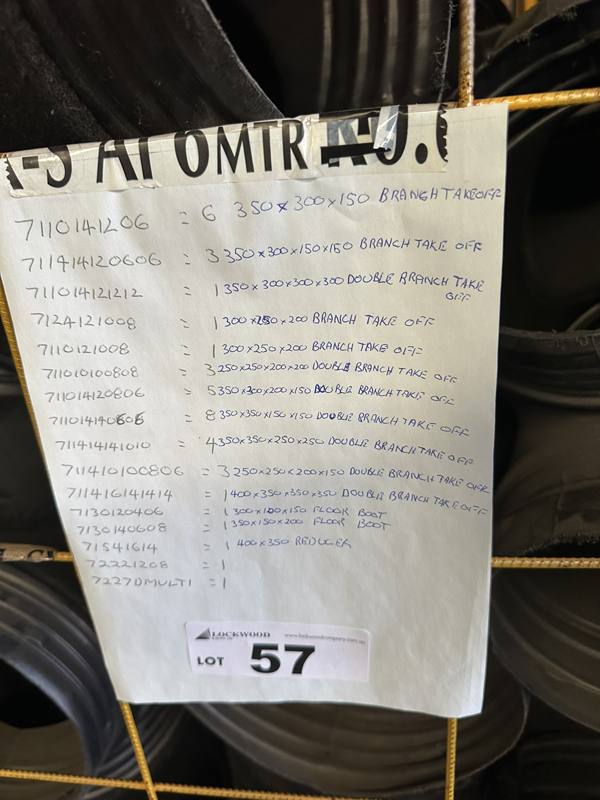 7110141206 = 6 350x300x150 BRANCH TAKEOFF
711414120606 = 3 350x300x150x150 BRANCH TAKE OFF
711014121212 = 1 350x300x300x300 DOUBLE BRANCH TAKE
OFF
7124121008 = 1 300x250x200 BRANCH TAKE OFF
7110121008 = 1 300x250x200 BRANCH TAKE OFF
711010100808 = 3 250x250x200x200 DOUBLE BRANCH TAKE OFF
711014120806 = 5 350x300x200x150 DOUBLE BRANCH TAKE OFF
711014140606 = 8 350x350x150x150 DOUBLE BRANCH TAKE OFF
711414141010 = 4 350x350x250x250 DOUBLE BRANCH TAKE OFF
711410100806 = 3 250x250x200x150 DOUBLE BRANCH TAKE OFF
711416141414 = 1 400x350x350x350 DOUBLE BRANCH TAKE OFF
7130120406 = 1 300x100x150 FLOOR BOOT
7130140608 = 1 350x150x200 FLOOR BOOT
71541614 = 1 400x350 REDUCER
72221208 = 1
7227DMULTI = 1
LOCKWOOD www.lockwoodcompany.com.au
LOT 57